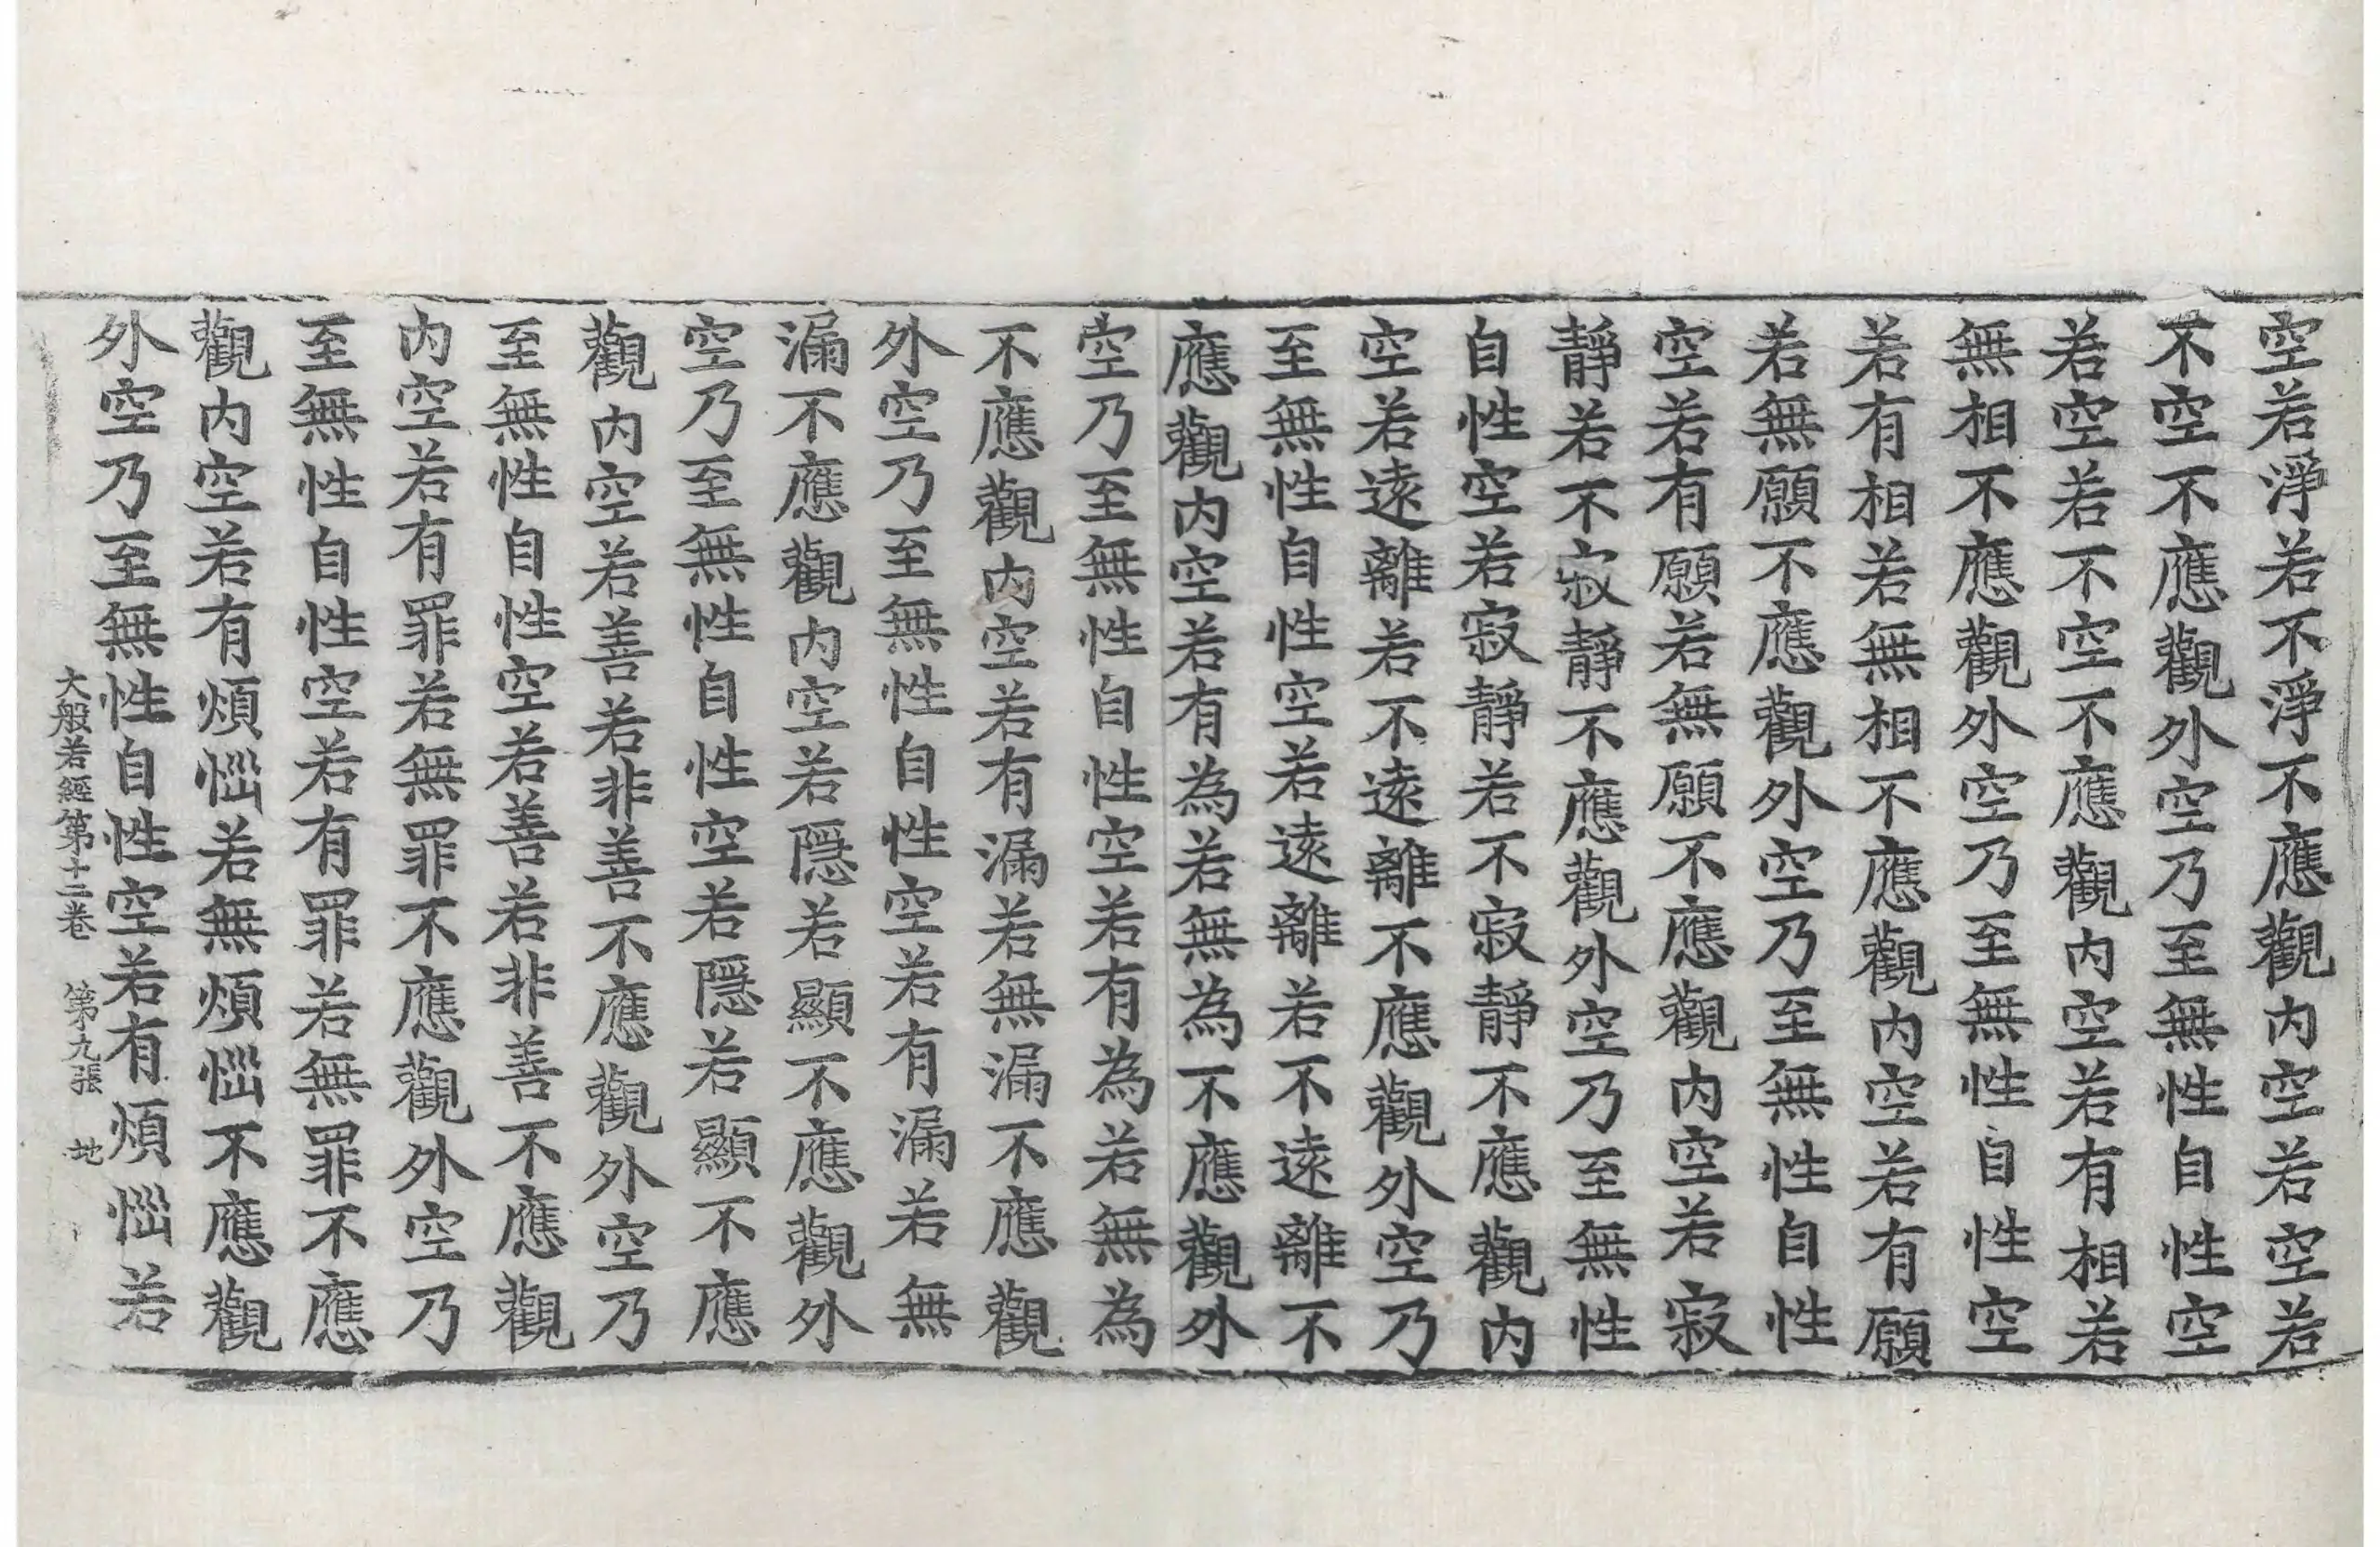 空若淨若不淨不應觀内空若空若
不空不應觀外空乃至無性自性空
若空若不空不應觀内空若有相若
無相不應觀外空乃至無性自性空
若有相若無相不應觀内空若有願
若無願不應觀外空乃至無性自性
空若有願若無願不應觀内空若寂
靜若不寂靜不應觀外空乃至無性
自性空若寂靜若不寂靜不應觀内
空若遠離若不遠離不應觀外空乃
至無性自性空若遠離若不遠離不
應觀内空若有為若無為不應觀外
空乃至無性自性空若有為若無為
不應觀内空若有漏若無漏不應觀
外空乃至無性自性空若有漏若無
漏不應觀内空若隱若顯不應觀外
空乃至無性自性空若隱若顯不應
觀内空若善若非善不應觀外空乃
至無性自性空若善若非善不應觀
内空若有罪若無罪不應觀外空乃
至無性自性空若有罪若無罪不應
觀内空若有煩惱若無煩惱不應觀
外空乃至無性自性空若有煩惱若
大般若經第十二卷 第九張 地